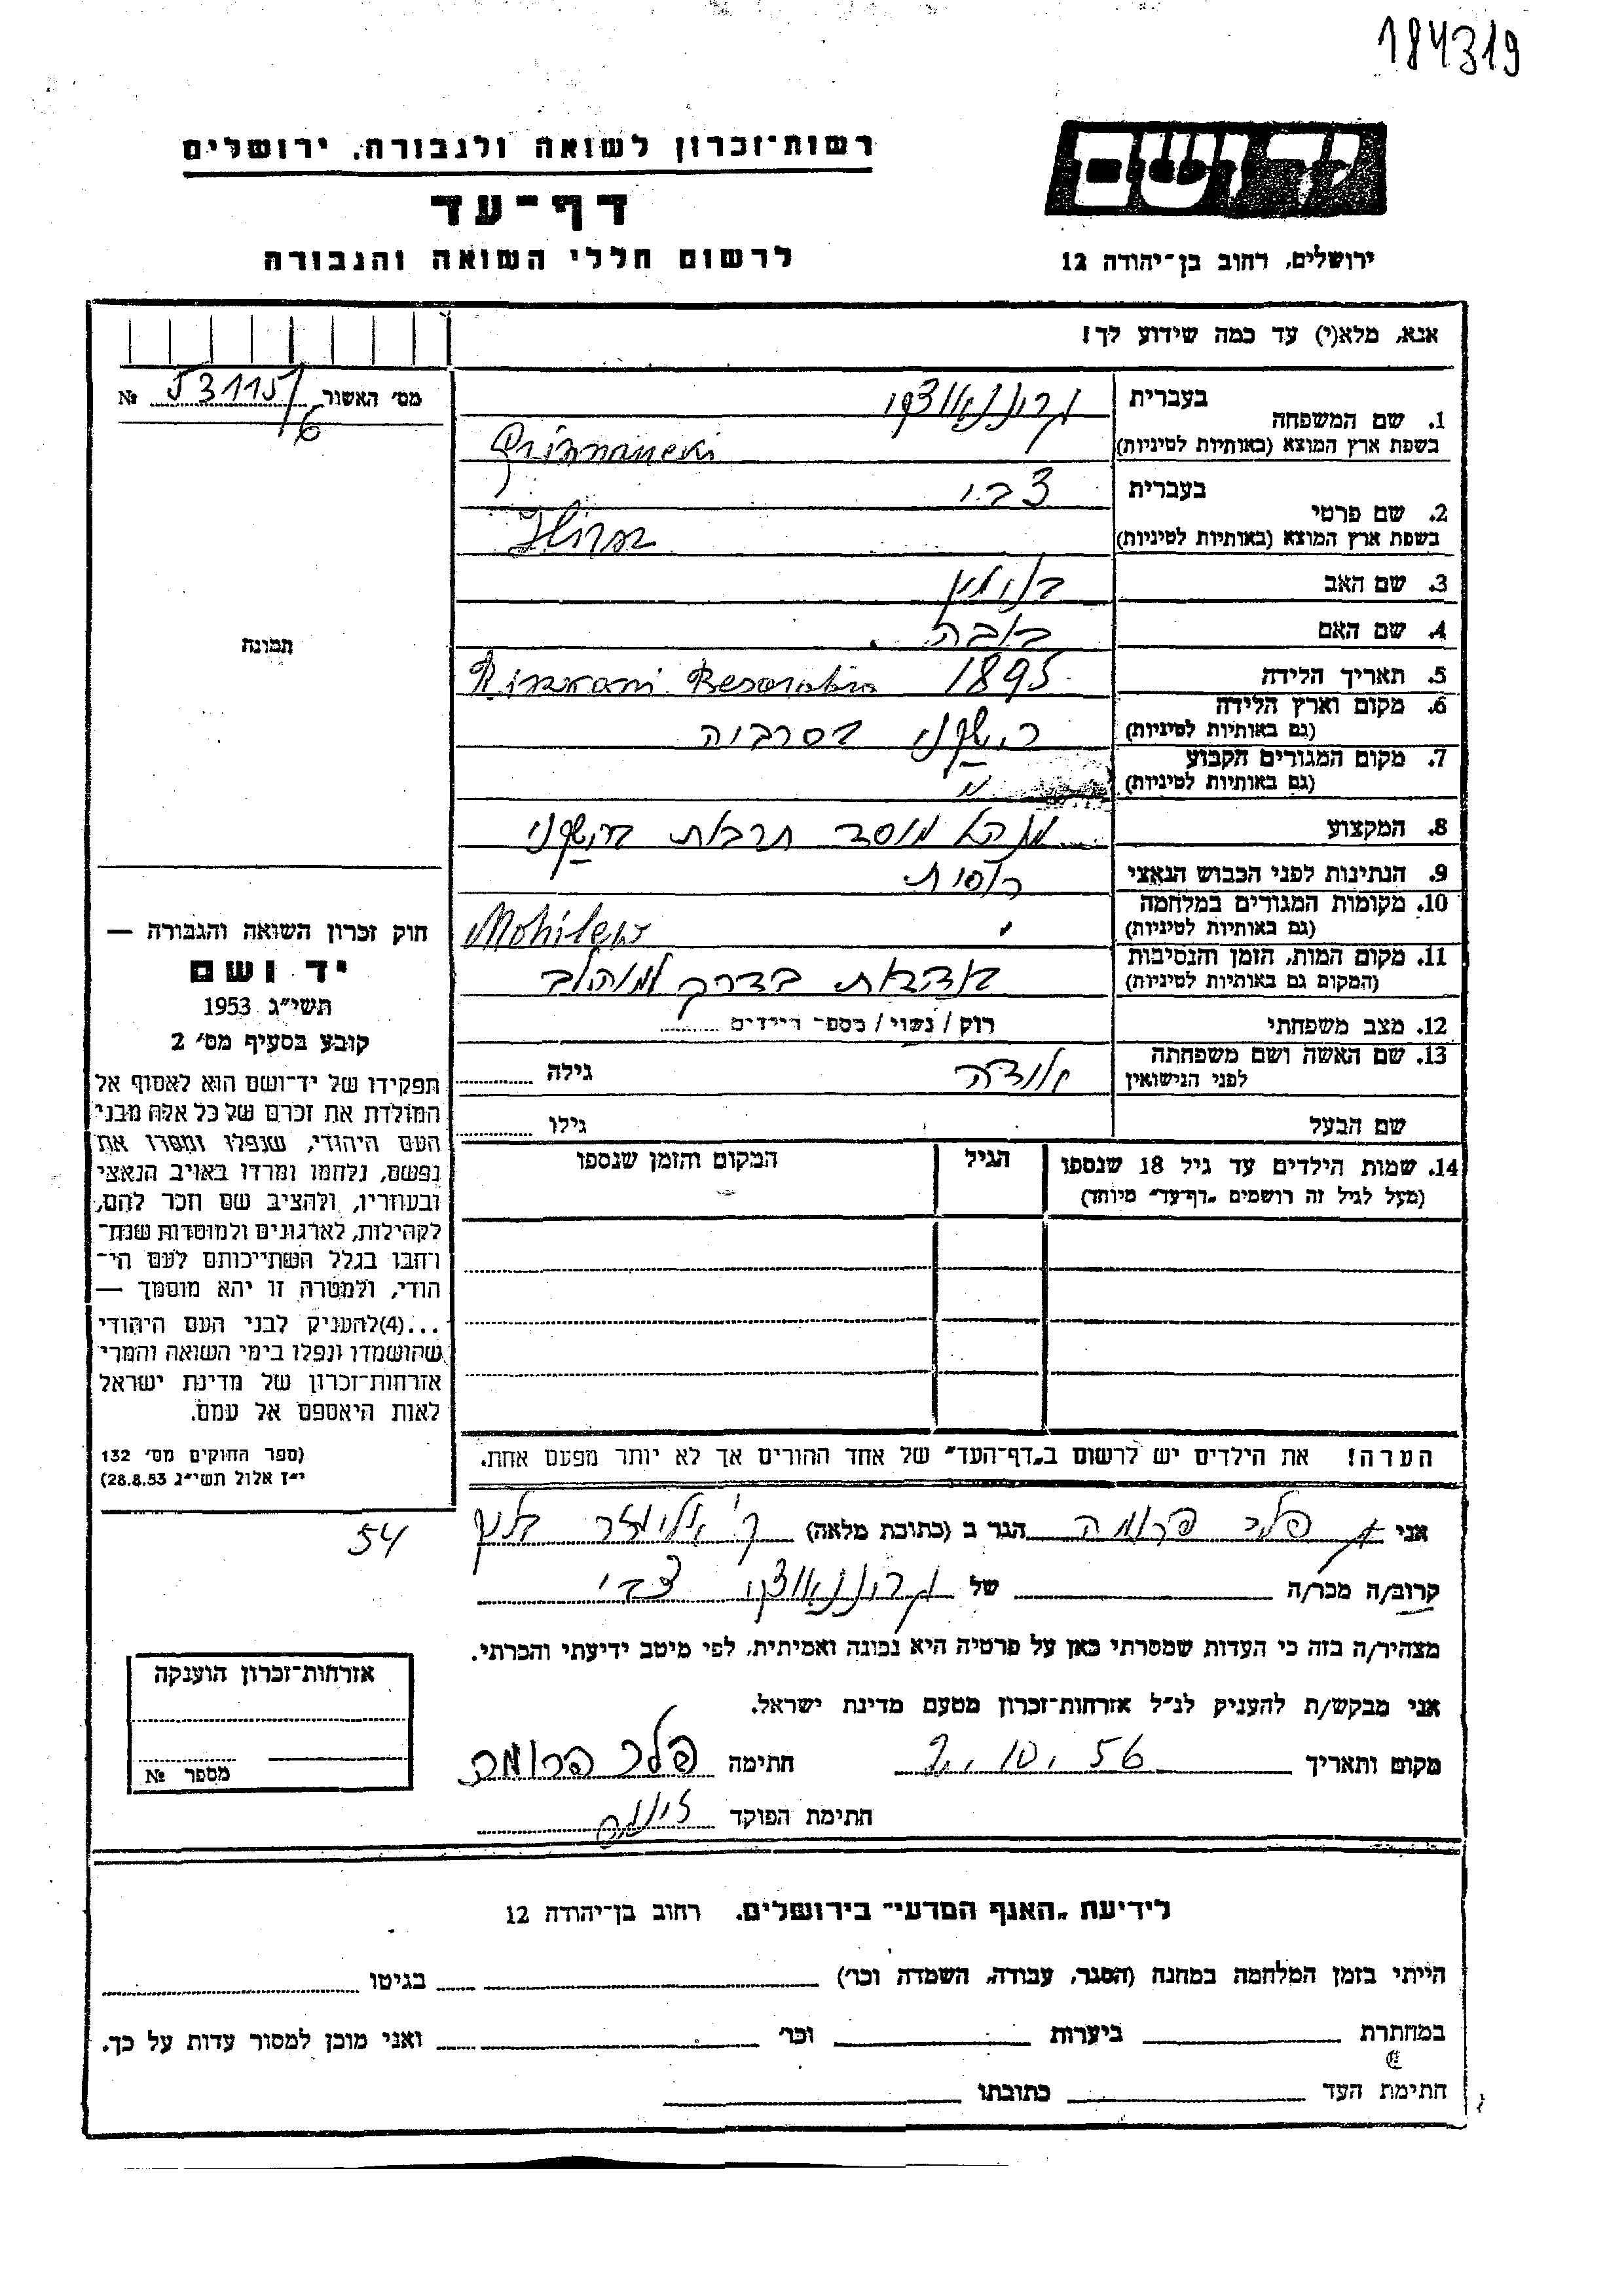 184319
רשות־זכרון לשואה ולגבורה, ירושלים
יד ושם
דף־עד
לרשום חללי השואה והגבורה
ירושלים, רחוב בן־יהודה 12
אנא, מלא(י) עד כמה שידוע לך!
מס׳ האשור 53115/6 №
בעברית
1. שם המשפחה
בשפת ארץ המוצא (באותיות לטיניות)
בעברית צבי
2. שם פרטי
בשפת ארץ המוצא (באותיות לטיניות)
3. שם האב
4. שם האם
תמונה
5. תאריך הלידה 1895
6. מקום וארץ הלידה
(גם באותיות לטיניות) רישקני בסרביה
7. מקום המגורים הקבוע
(גם באותיות לטיניות) "
8. המקצוע מוסד תרבות ברישקני
9. הנתינות לפני הכבוש הנאצי
10. מקומות המגורים במלחמה
(גם באותיות לטיניות) Mohilew
11. מקום המות, הזמן והנסיבות
(המקום גם באותיות לטיניות) בדרך למוהלב
12. מצב משפחתי רוק / נשוי / מספר הילדים
13. שם האשה ושם משפחתה
לפני הנישואין גילה
שם הבעל גילו
14. שמות הילדים עד גיל 18 שנספו הגיל המקום והזמן שנספו
(מעל לגיל זה רושמים „דף־עד״ מיוחד)
הערה! את הילדים יש לרשום ב„דף־העד״ של אחד ההורים אך לא יותר מפעם אחת.
חוק זכרון השואה והגבורה —
יד ושם
תשי״ג 1953
קובע בסעיף מס׳ 2
תפקידו של יד־ושם הוא לאסוף אל
המולדת את זכרם של כל אלה מבני
העם היהודי, שנפלו ומסרו את
נפשם, נלחמו ומרדו באויב הנאצי
ובעוזריו, ולהציב שם וזכר להם,
לקהילות, לארגונים ולמוסדות שנח־
רחבו בגלל השתייכותם לעם הי־
הודי, ולמטרה זו יהא מוסמך —
...(4)להעניק לבני העם היהודי
שהושמדו ונפלו בימי השואה והמרי
אזרחות־זכרון של מדינת ישראל
לאות היאספם אל עמם.
(ספר החוקים מס׳ 132
י״ז אלול תשי״ג 28.8.53)
54
אני פרומה הגר ב (כתובת מלאה)
קרוב/ה מכר/ה של צבי
מצהיר/ה בזה כי העדות שמסרתי כאן על פרטיה היא נכונה ואמיתית, לפי מיטב ידיעתי והכרתי.
אני מבקש/ת להעניק לנ״ל אזרחות־זכרון מטעם מדינת ישראל.
מקום ותאריך 2.10.56 חתימה פרומה
חתימת הפוקד
אזרחות־זכרון הוענקה
מספר №
לידיעת „האגף המדעי״ בירושלים, רחוב בן־יהודה 12
הייתי בזמן המלחמה במחנה (הסגר, עבודה, השמדה וכר׳) בגיטו
במחתרת ביערות וכר׳ ואני מוכן למסור עדות על כך.
חתימת העד כתובתו